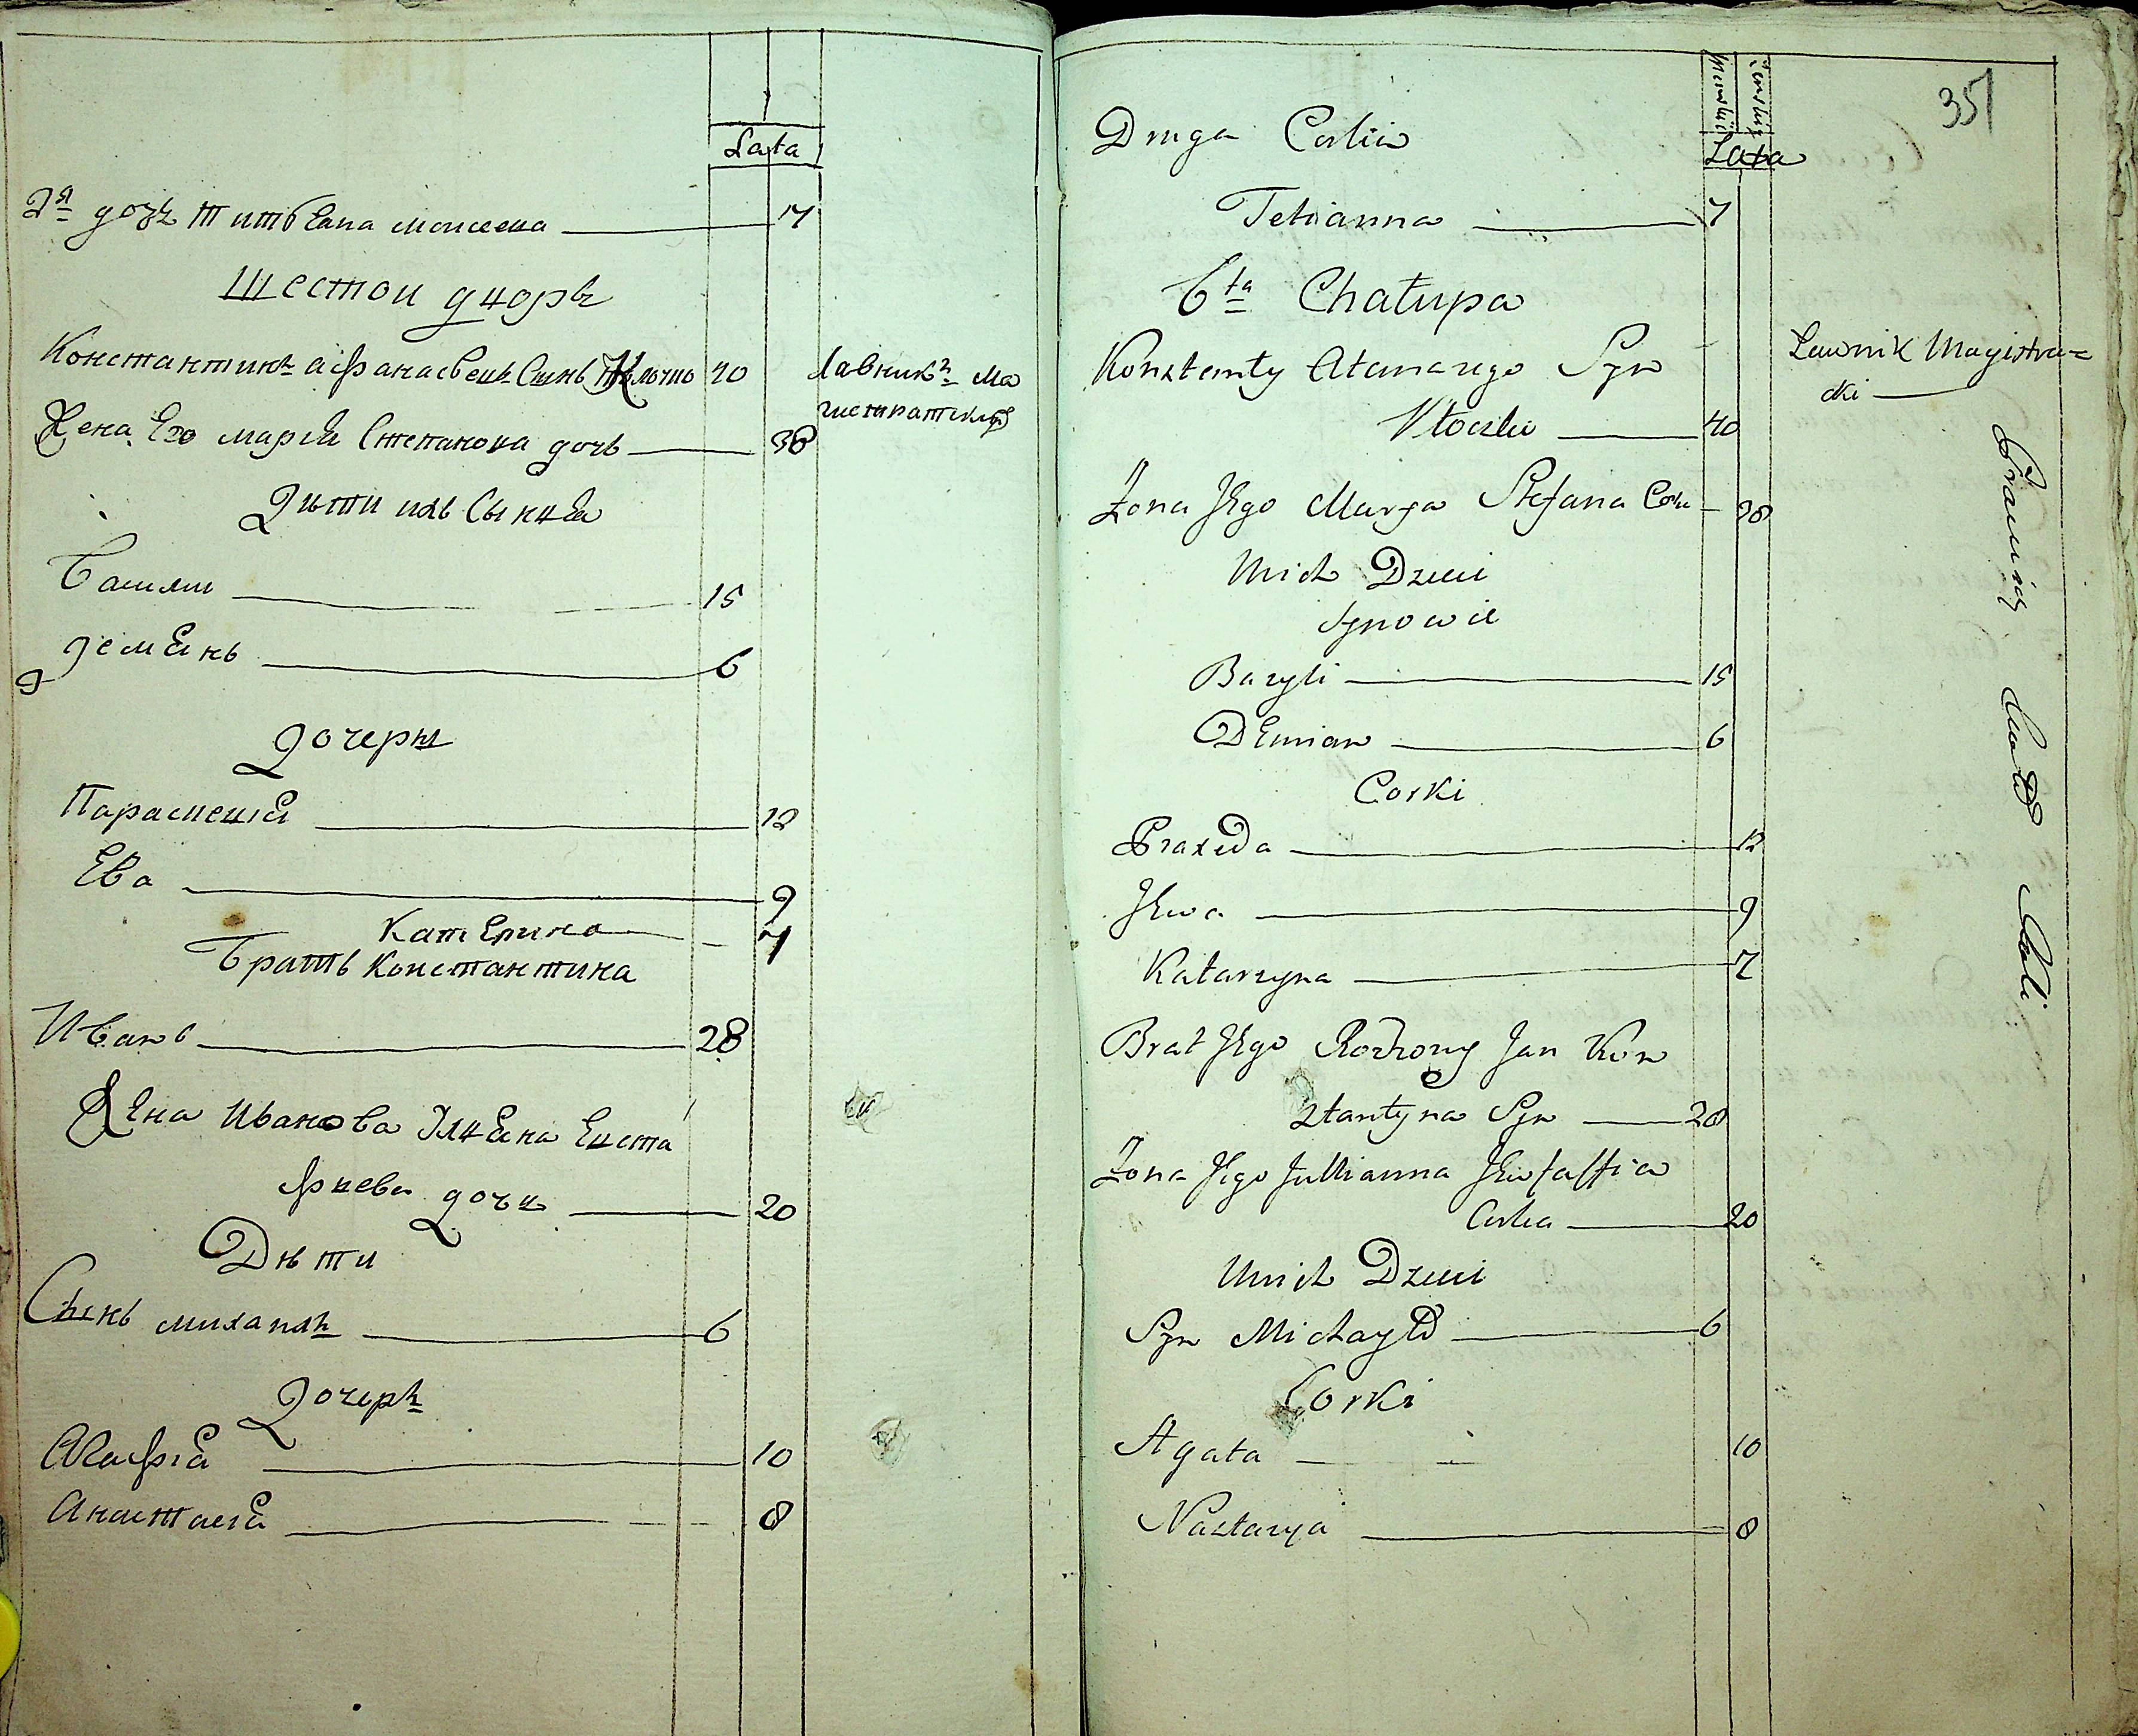 Lata
2я дочь Титѣяна моисеева 7
Шестои дворъ
Константинъ афанасьевъ Сынъ 40
Лавникъ Ма
гистратскій
Жена Его марія Степанова дочь 38
Дѣти ихъ Сыновя
Василий 15
демянь 6
Дочеры
Параскевія 12
Ева 9
Катерина 7
Братъ Константина
Иванъ 28
Жена Иванова Улияна Евста
фиева дочь 20
Дѣти
Сынь михаилъ 6
Дочерѣ
Агафія 10
Анастасія 8
351
Męskiej Żenskiej
Lata
Druga Corka
Tetianna 7
6ta Chałupa
Konztenty Atanazego Syn
Włoszko 40
Lawnik Magistra=
cki
Żona Jego Marya Stefana Cor 38
Unich Dzieci
Synowie
Bazyli 15
Demian 6
Corki
Praxeda 12
Jewa 9
Katarzyna 7
Brat Jego Rodzony Jan Kon
ztantyna Syn 28
Żona Jego Julianna Jewstaffia
Corka 20
Unich Dzieci
Syn Michayło 6
Corki
Agata 10
Nastazya 8